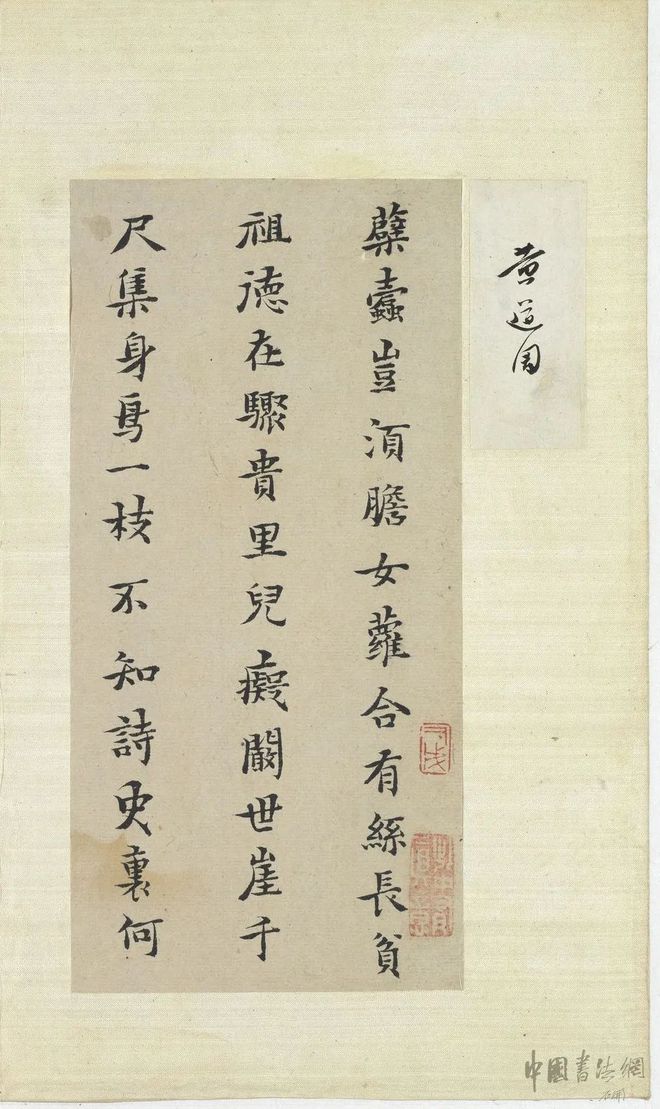 黄道周
蘗蠹豈須膽女蘿合有絲長貧
祖德在驟貴里兒癡闞世崖千
尺集身鳥一枝不知詩史裏何
中國書法網